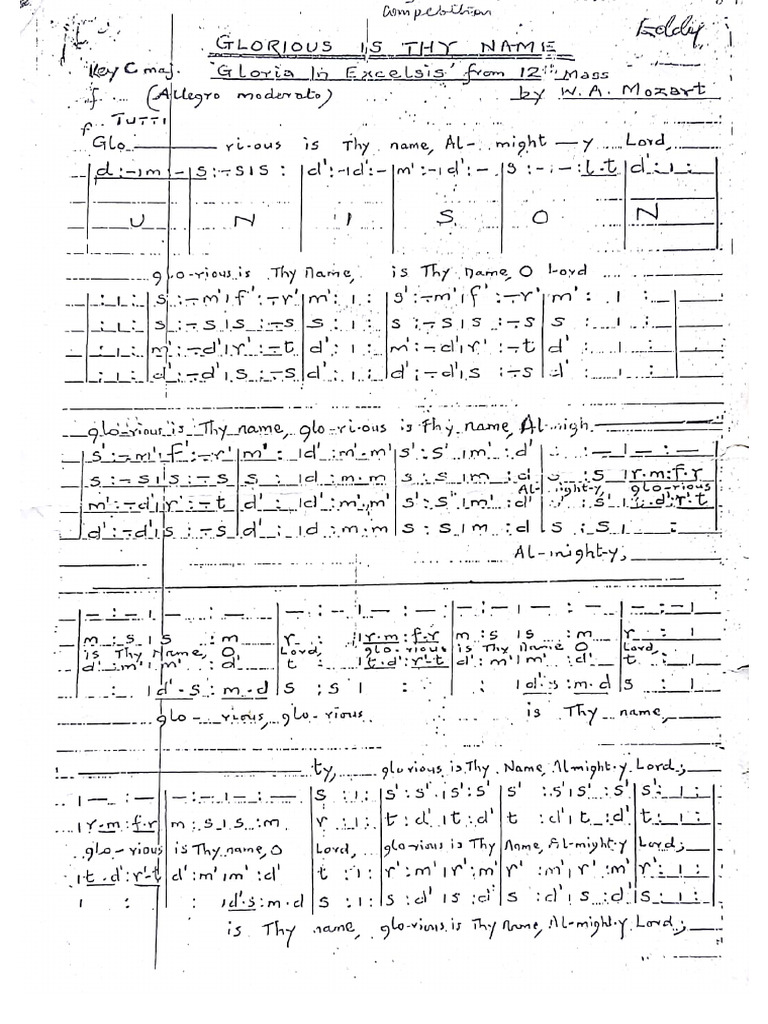 Competition
Eddy
GLORIOUS IS THY NAME
Key C maj. 'Gloria In Excelsis' from 12th Mass
f (Allegro moderato) by W. A. Mozart
f TUTTI
Glo ri-ous is Thy name, Al- might — y Lord,
d : - | m - | s : - s | s : | d' : - | d' : - | m' : - | d' : - | s : - | - : l . t | d' : | :
U N I S O N
glo-rious is Thy Name, is Thy name, O Lord
: | : | s' : - m' | f' : - r' | m' : | : | s' : - m' | f' : - r' | m' : | :
: | : | s : - s | s : - s | s : | : | s : - s | s : - s | s : | :
: | : | m' : - d' | r' : - t | d' : | : | m' : - d' | r' : - t | d' : | :
: | : | d' : - d' | s : - s | d' : | : | d' : - d' | s : - s | d' : | :
glo-rious is Thy name, glo-ri-ous is thy name, Al-migh-
s' : - m' | f' : - r' | m' : | d' : m' . m' | s' : s' | m' : d' | : - | - : -
s : - s | s : - s | s : | d : m . m | s : s | m : d | s : s | r . m : f . r
Al-might-y glo-rious
m' : - d' | r' : - t | d' : | d' : m' . m' | s' : s' | m' : d' | : s' | t . d' : r' . t
d' : - d' | s : - s | d' : | d : m . m | s : s | m : d | s : s | :
Al-might-y,
- : - | - : - | - : - | - : - | - : - | - : - | - : - |
m : s | s : m | r : | r . m : f . r | m : s | s : m | r : |
is Thy Name, O Lord, glo-rious is Thy Name O Lord,
d' : m' | m' : d' | t : | t . d' : r' . t | d' : m' | m' : d' | t : |
: | d' . s : m . d | s : s | : | : | d' . s : m . d | s : |
glo-rious, glo-rious is Thy name,
ty, glorious is Thy Name, Almight-y Lord;
| - : - | - : - | - : - | s : | : | s' : s' | s' : s' | s' : s' | s' : s' | s' : | :
| r . m : f . r | m : s | s : m | r : | : | t : d' | t : d' | t : d' | t : d' | t : | :
glo-rious is Thy name, O Lord, glo-rious is Thy Name, Al-might-y Lord;
| t . d' : r' . t | d' : m' | m' : d' | t : | : | r' : m' | r' : m' | r' : m' | r' : m' | r' : | :
| : | : | d' . s : m . d | s : | : | s : d' | s : d' | s : d' | s : d' | s : | :
is Thy name, glo-rious is Thy Name, Al-might-y Lord;